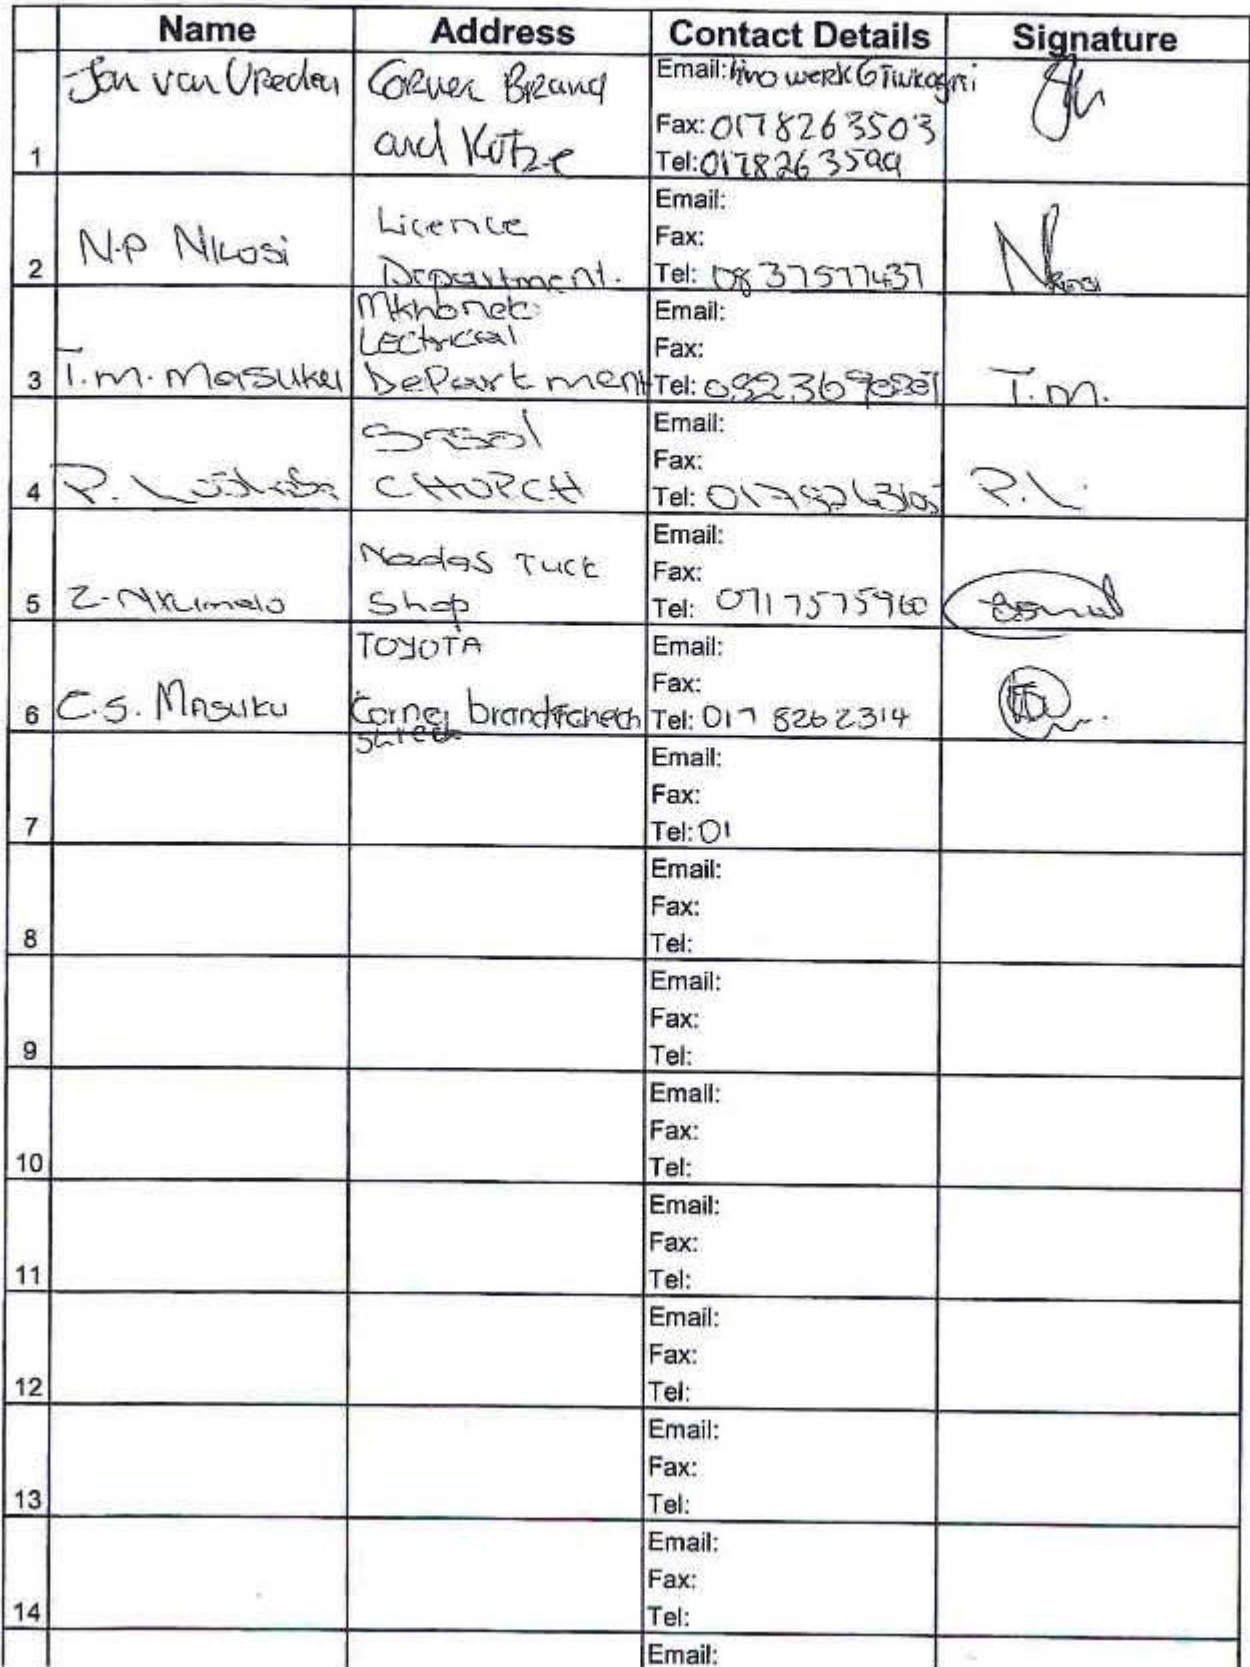 Name Address Contact Details Signature
1 Jan van Vreden Corner Brand
and Kotze
Email:
Fax: 0178263503
Tel: 0178263599
2 N.P Nkosi Licence
Department.
Email:
Fax:
Tel: 0837577437
Nkosi
3 T.m. masuku
Lectrical
DePartment
Email:
Fax:
Tel:
T.m.
4 P. Sasol
CHURCH
Email:
Fax:
Tel:
P.L.
5 Z. Nkumalo Nadas Tuck
Shop
Email:
Fax:
Tel: 0717575960
6 C.S. Masuku TOYOTA
Corner
street
Email:
Fax:
Tel: 017 8262314
7
Email:
Fax:
Tel: 01
8
Email:
Fax:
Tel:
9
Email:
Fax:
Tel:
10
Email:
Fax:
Tel:
11
Email:
Fax:
Tel:
12
Email:
Fax:
Tel:
13
Email:
Fax:
Tel:
14
Email:
Fax:
Tel:
Email: